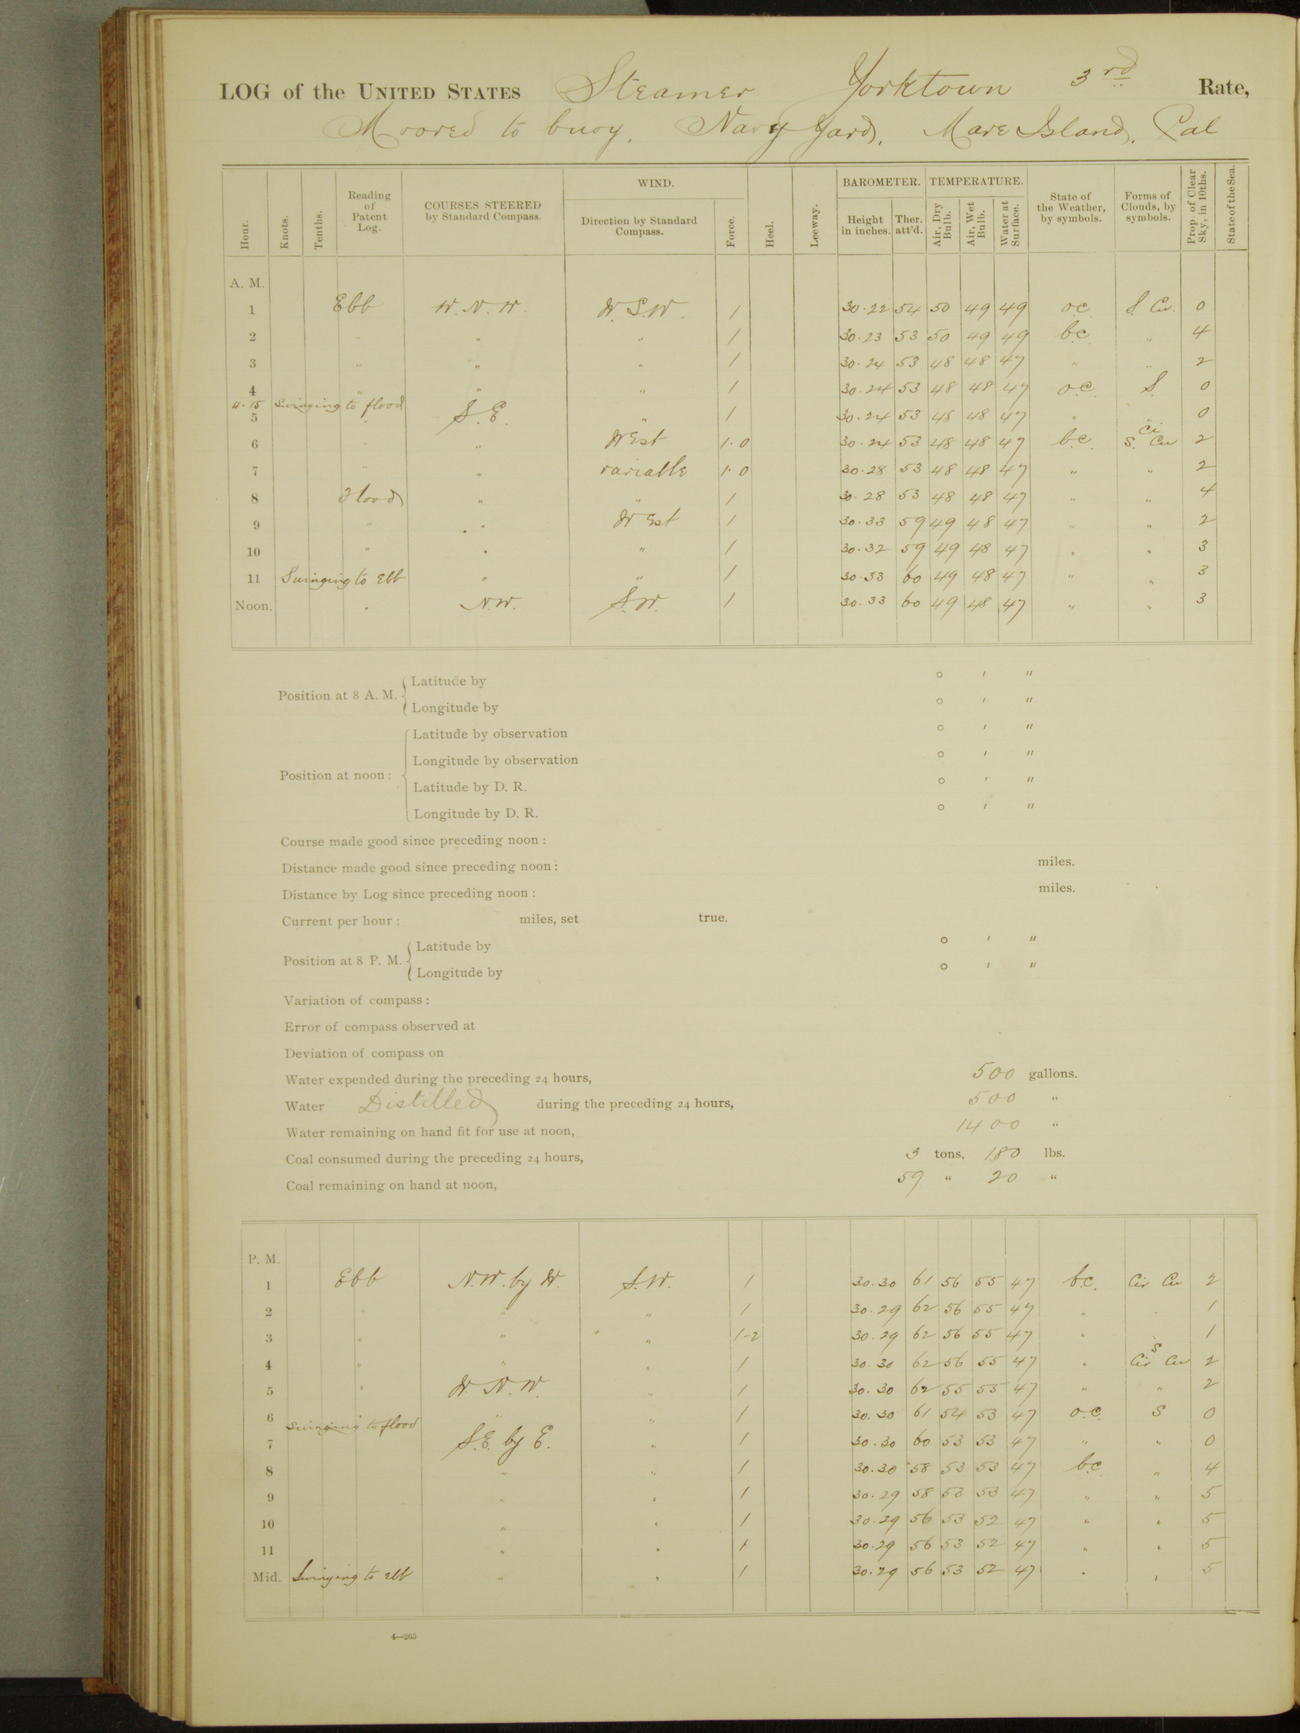 LOG of the UNITED STATES Steamer Yorktown 3rd Rate,
Moored to buoy, Navy Yard, Mare Island, Cal
Hour. Knots. Tenths. Reading of Patent Log. COURSES STEERED by Standard Compass. WIND. Direction by Standard Compass. Force. Heel. Leeway. BAROMETER. Height in inches. Ther. att'd. TEMPERATURE. Air, Dry Bulb. Air, Wet Bulb. Water at Surface. State of the Weather, by symbols. Forms of Clouds, by symbols. Prop. of Clear Sky, in 10ths. State of the Sea.
A. M.
1 Ebb W. N. W. W. S. W. 1 30.22 54 50 49 49 o.c. S Cu. 0
2 " " " 1 30.23 53 50 49 49 b.c. " 4
3 " " " 1 30.24 53 48 48 47 " " 2
4 " " " 1 30.24 53 48 48 47 o.c. S. 0
4.15 Swinging to flood
5 " S. E. " 1 30.24 53 48 48 47 " " 0
6 " " West 1.0 30.24 53 48 48 47 b.c. S. Ci Cu 2
7 " " variable 1.0 30.28 53 48 48 47 " " 2
8 Flood " " 1 30.28 53 48 48 47 " " 4
9 " " West 1 30.33 59 49 48 47 " " 2
10 " " " 1 30.32 59 49 48 47 " " 3
11 Swinging to Ebb " " 1 30.33 60 49 48 47 " " 3
Noon. " N.W. S.W. 1 30.33 60 49 48 47 " " 3
Position at 8 A. M. Latitude by ° ' "
Longitude by ° ' "
Position at noon: Latitude by observation ° ' "
Longitude by observation ° ' "
Latitude by D. R. ° ' "
Longitude by D. R. ° ' "
Course made good since preceding noon:
Distance made good since preceding noon: miles.
Distance by Log since preceding noon: miles.
Current per hour: miles, set true.
Position at 8 P. M. Latitude by ° ' "
Longitude by ° ' "
Variation of compass:
Error of compass observed at
Deviation of compass on
Water expended during the preceding 24 hours, 500 gallons.
Water Distilled during the preceding 24 hours, 500 "
Water remaining on hand fit for use at noon, 1400 "
Coal consumed during the preceding 24 hours, 3 tons, 180 lbs.
Coal remaining on hand at noon, 59 " 20 "
P. M.
1 Ebb N.W. by W. S.W. 1 30.30 61 56 55 47 b.c. Cir Cu 2
2 " " " 1 30.29 62 56 55 47 " " 1
3 " " " " 1-2 30.29 62 56 55 47 " " 1
4 " " " 1 30.30 62 56 55 47 " Cir S Cu 2
5 " W N. W. " 1 30.30 62 55 55 47 " " 2
6 Swinging to flood " " 1 30.30 61 54 53 47 o.c. S 0
7 S.E. by E. " 1 30.30 60 53 53 47 " " 0
8 " " 1 30.30 58 53 53 47 b.c. " 4
9 " " 1 30.29 58 53 53 47 " " 5
10 " " 1 30.29 56 53 52 47 " " 5
11 " " 1 30.29 56 53 52 47 " " 5
Mid. Swinging to ebb " " 1 30.29 56 53 52 47 " " 5
4—265